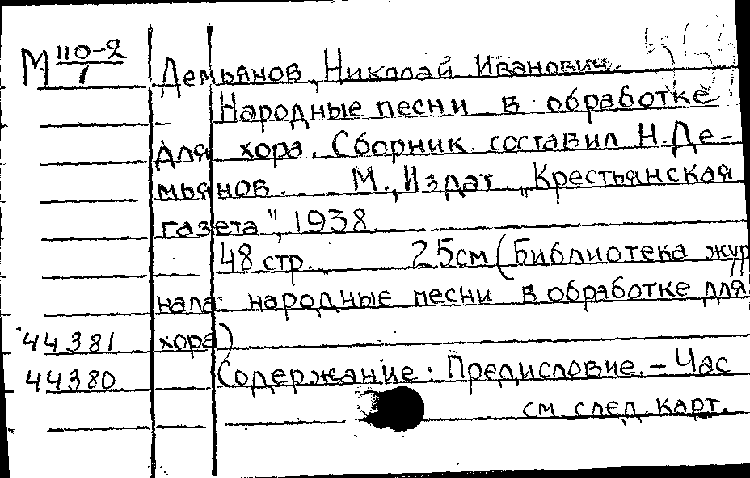 М 110-2/1
Демьянов, Николай Иванович.
Народные песни в обработке
для хора. Сборник составил Н. Де-
мьянов. М., Издат. „Крестьянская
газета", 1938
48 стр. 25см (Библиотека жур
нала народные песни в обработке для
44381 хора)
44380 Содержание: Предисловие. – Час
см след. карт.